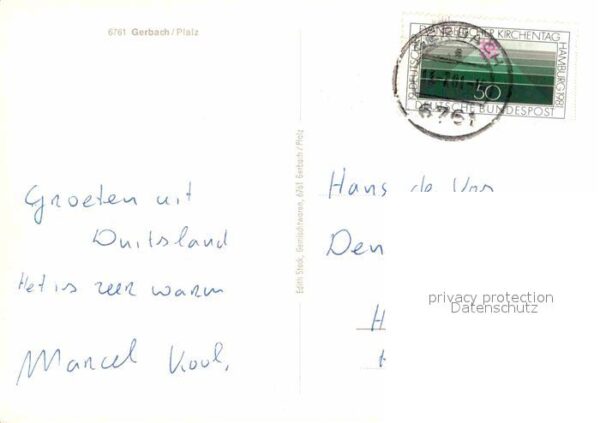 6761 Gerbach/Pfalz
DEUTSCHER EVANGELISCHER KIRCHENTAG HAMBURG 1981
50
DEUTSCHE BUNDESPOST
GERBACH
6761
Groeten uit
Duitsland
Het is zeer warm
Marcel
Edith Steck, Gemischtwaren, 6761 Gerbach/Pfalz
Hans de
Den
H
privacy protection
Datenschutz